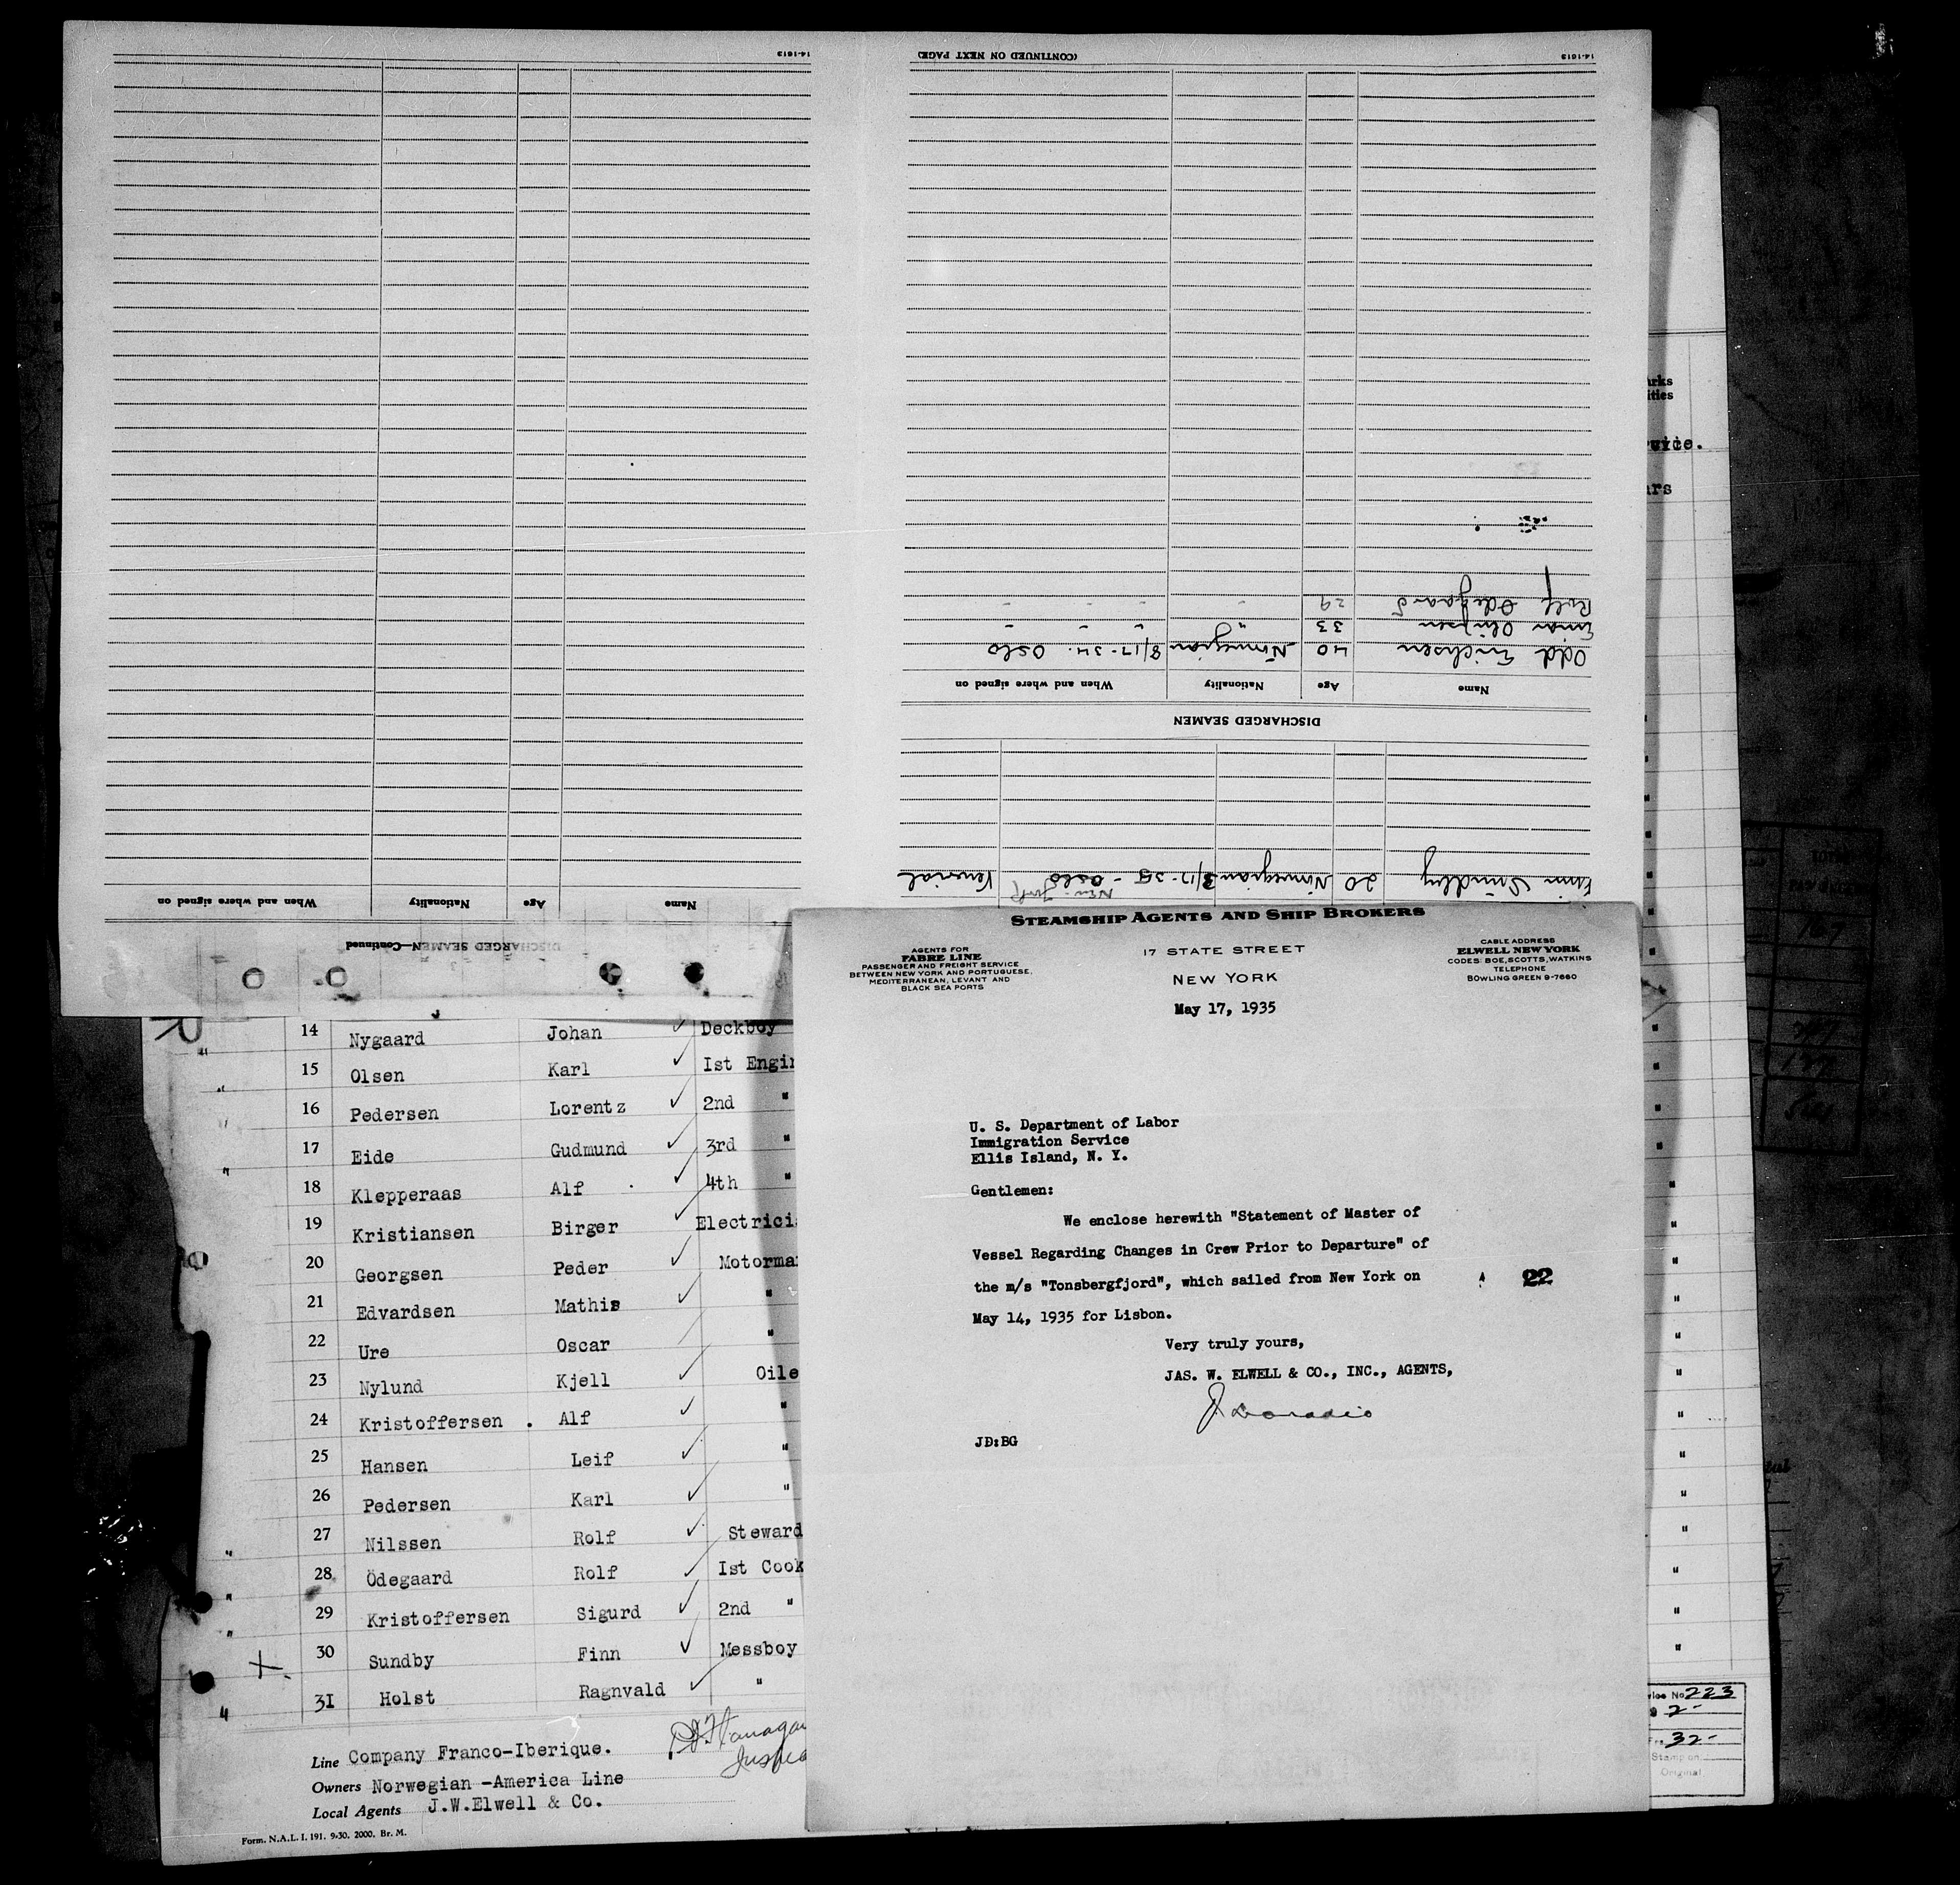 14-1613
(CONTINUED ON NEXT PAGE)
14-1613
Rolf Odegaard 29 " " " "
Einar Olufsen 33 " " " "
Odd Erichsen 40 Norwegian 8/17-34. Oslo
Name Age Nationality When and where signed on
DISCHARGED SEAMEN
Finn Sundby 20 Norwegian 3/17-35 - Oslo
New York
Name Age Nationality When and where signed on
DISCHARGED SEAMEN—Continued
arks
ities
rvice.
ars
STEAMSHIP AGENTS AND SHIP BROKERS
AGENTS FOR
FABRE LINE
PASSENGER AND FREIGHT SERVICE
BETWEEN NEW YORK AND PORTUGUESE,
MEDITERRANEAN, LEVANT AND
BLACK SEA PORTS
17 STATE STREET
NEW YORK
CABLE ADDRESS
ELWELL NEW YORK
CODES: BOE, SCOTTS, WATKINS
TELEPHONE
BOWLING GREEN 9-7660
May 17, 1935
U. S. Department of Labor
Immigration Service
Ellis Island, N. Y.
Gentlemen:
We enclose herewith "Statement of Master of
Vessel Regarding Changes in Crew Prior to Departure" of
the m/s "Tonsbergfjord", which sailed from New York on
22
May 14, 1935 for Lisbon.
Very truly yours,
JAS. W. ELWELL & CO., INC., AGENTS,
J. Donadio
JD:BG
14 Nygaard Johan ✓ Deckboy
15 Olsen Karl ✓ Ist Engin
16 Pedersen Lorentz ✓ 2nd "
17 Eide Gudmund ✓ 3rd "
18 Klepperaas Alf ✓ 4th "
19 Kristiansen Birger ✓ Electrici
20 Georgsen Peder ✓ Motorma
21 Edvardsen Mathis ✓ "
22 Ure Oscar ✓ "
23 Nylund Kjell ✓ Oile
24 Kristoffersen . Alf ✓ "
25 Hansen Leif ✓ "
26 Pedersen Karl ✓ "
27 Nilssen Rolf ✓ Steward
28 Ödegaard Rolf ✓ Ist Cook
29 Kristoffersen Sigurd ✓ 2nd "
30 Sundby Finn ✓ Messboy
3I Holst Ragnvald ✓ "
Line Company Franco-Iberique.
Owners Norwegian -America Line
Local Agents J.W.Elwell & Co.
Form. N.A.L. I. 191. 9-30. 2000. Br. M.
No 223
2-
32-
Stamp on
Original